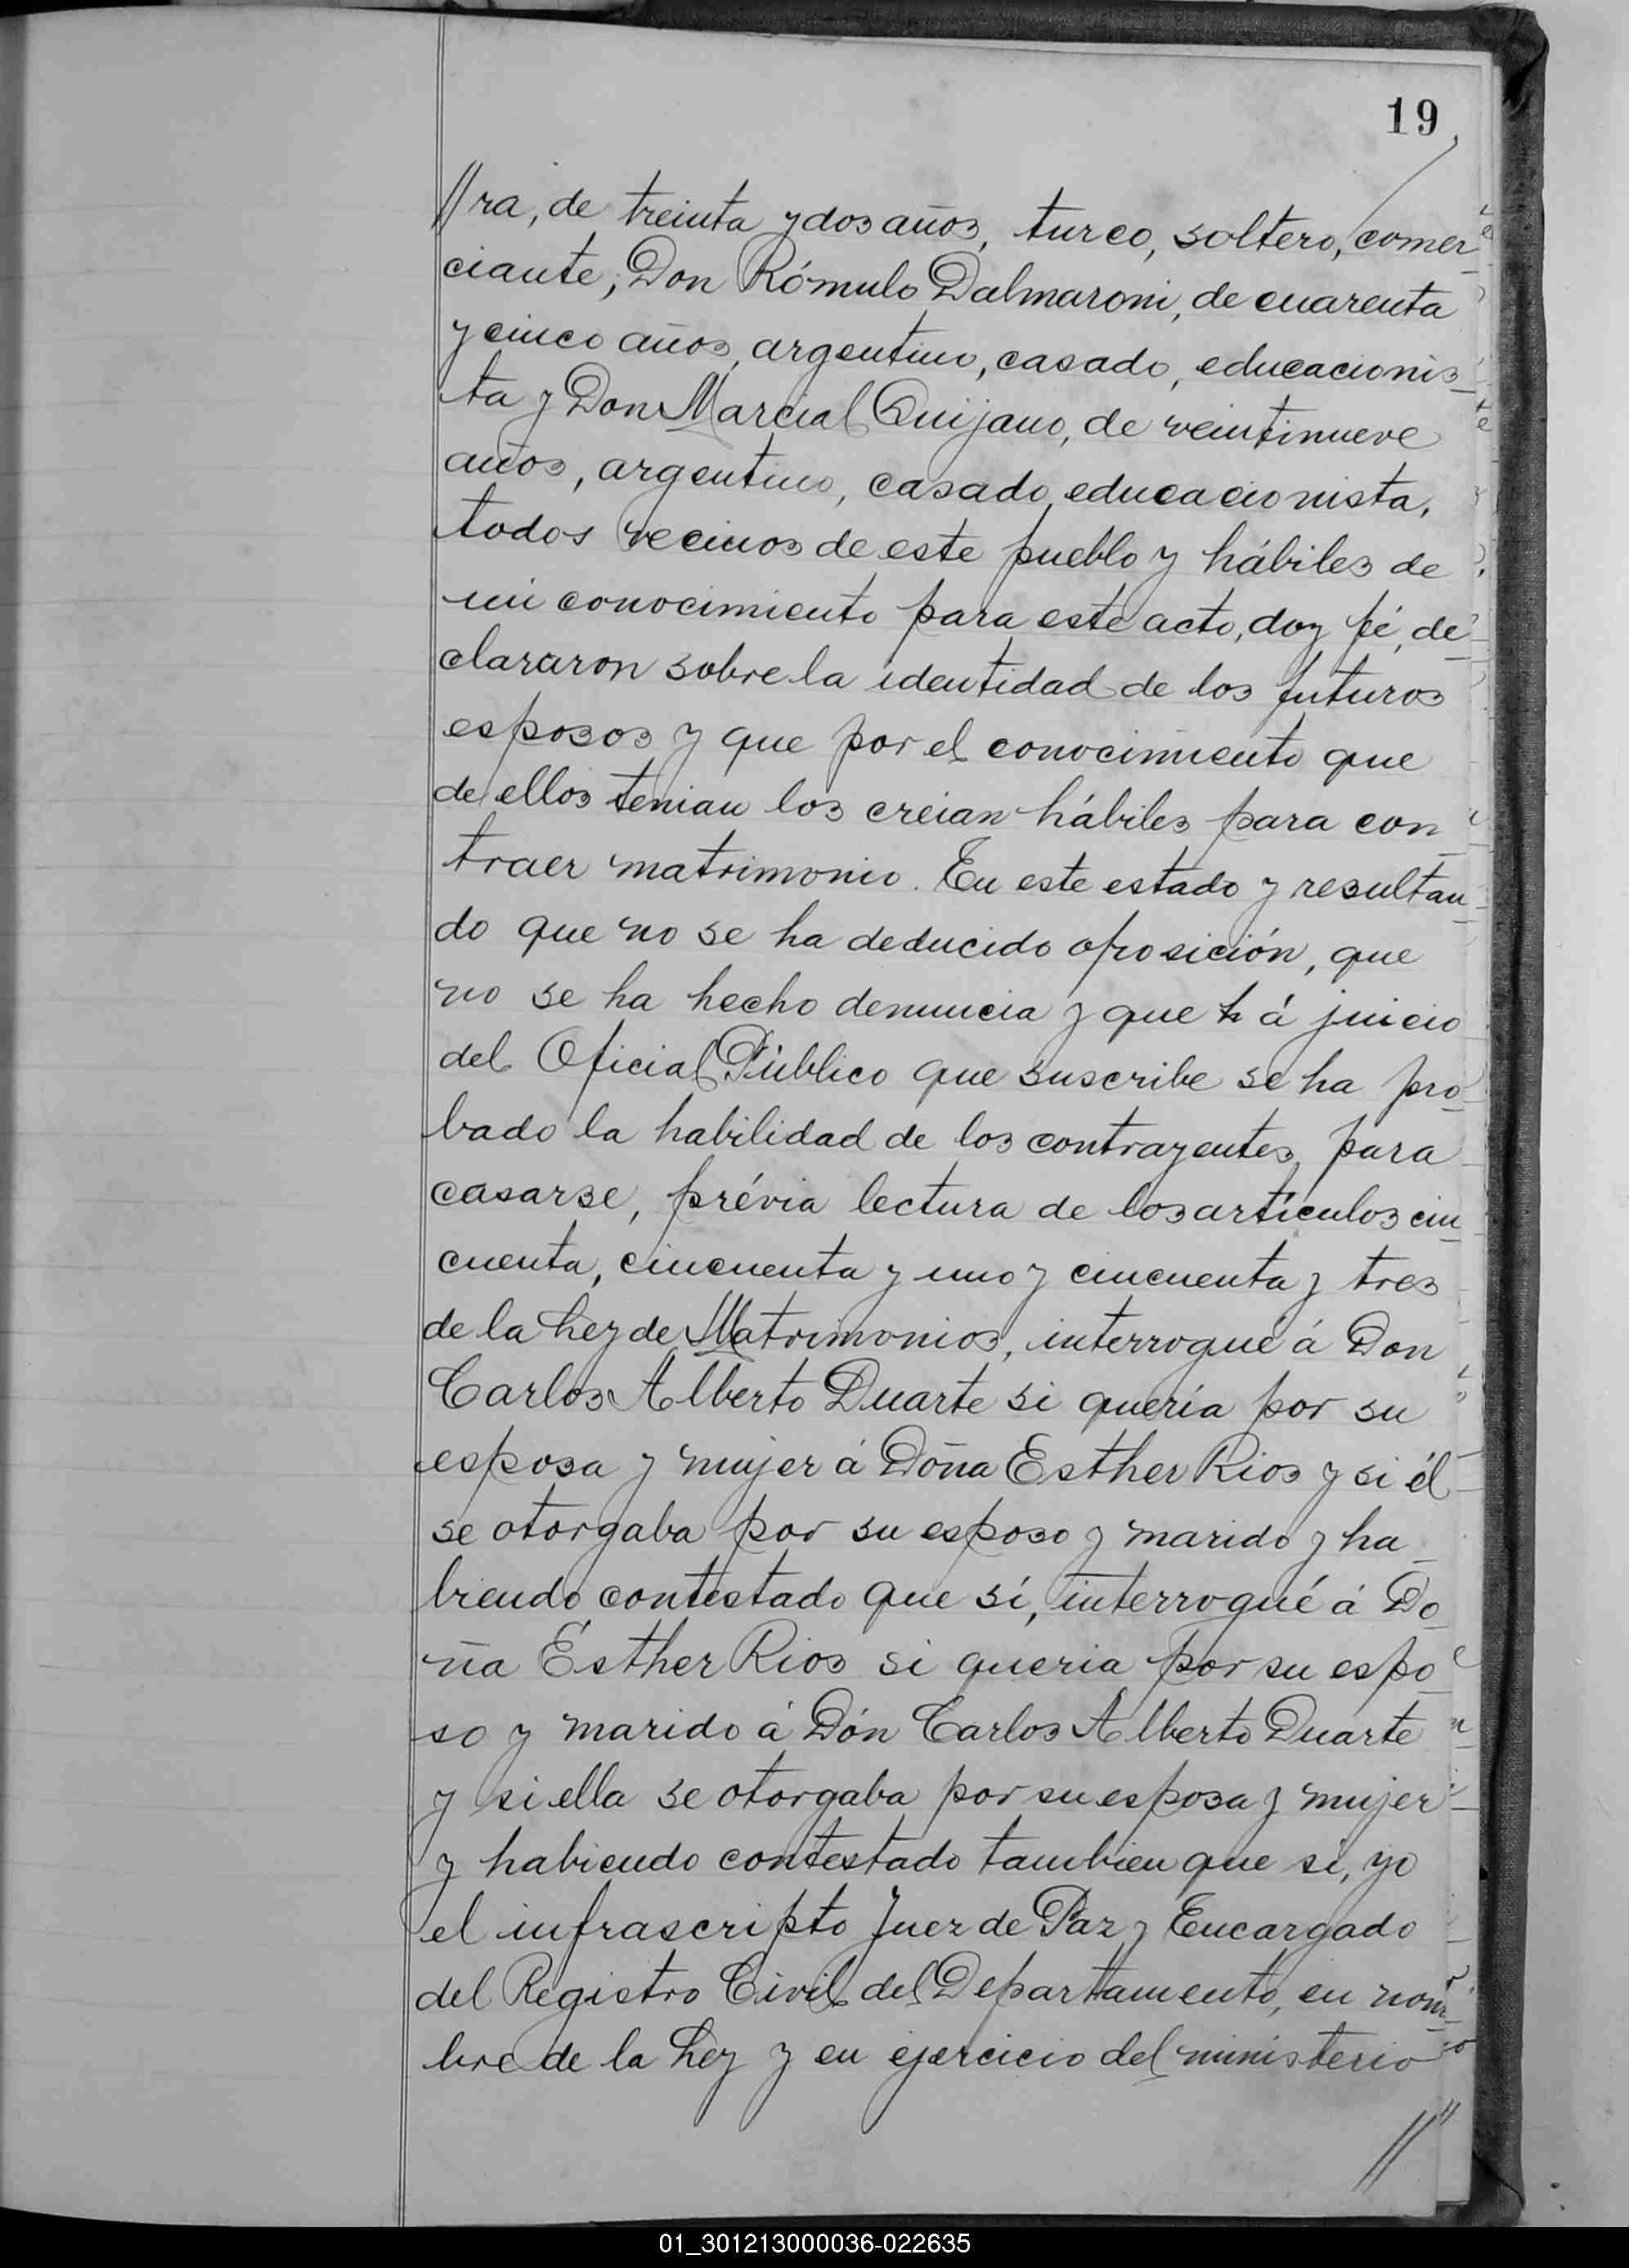 19
//ra, de treinta y dos años, turco, soltero, comer-
ciante; Don Rómulo Dalmaroni, de cuarenta
y cinco años, argentino, casado, educacionis-
ta y Don Marcial Quijano, de veintinueve
años, argentino, casado, educacionista,
todos vecinos de este pueblo y hábiles de
mi conocimiento para este acto, doy fé, de-
clararon sobre la identidad de los futuros
esposos y que por el conocimiento que
de ellos tenian los creian hábiles para con-
traer matrimonio. En este estado y resultan-
do que no se ha deducido oposición, que
no se ha hecho denuncia y que h á juicio
del Oficial Público que suscribe se ha pro-
bado la habilidad de los contrayentes, para
casarse, prévia lectura de los artículos cin-
cuenta, cincuenta y uno y cincuenta y tres
de la Ley de Matrimonios, interrogué á Don
Carlos Alberto Duarte si quería por su
esposa y mujer á Doña Esther Rios y si él
se otorgaba por su esposo y marido y ha-
biendo contestado que sí, interrogué á Do-
ña Esther Rios si queria por su espo-
so y marido á Dón Carlos Alberto Duarte
y si ella se otorgaba por su esposa y mujer
y habiendo contestado tambien que si, yo
el infrascripto Juez de Paz y Encargado
del Registro Civil del Departamento, en nom-
bre de la Ley y en ejercicio del ministerio
//
01_301213000036-022635